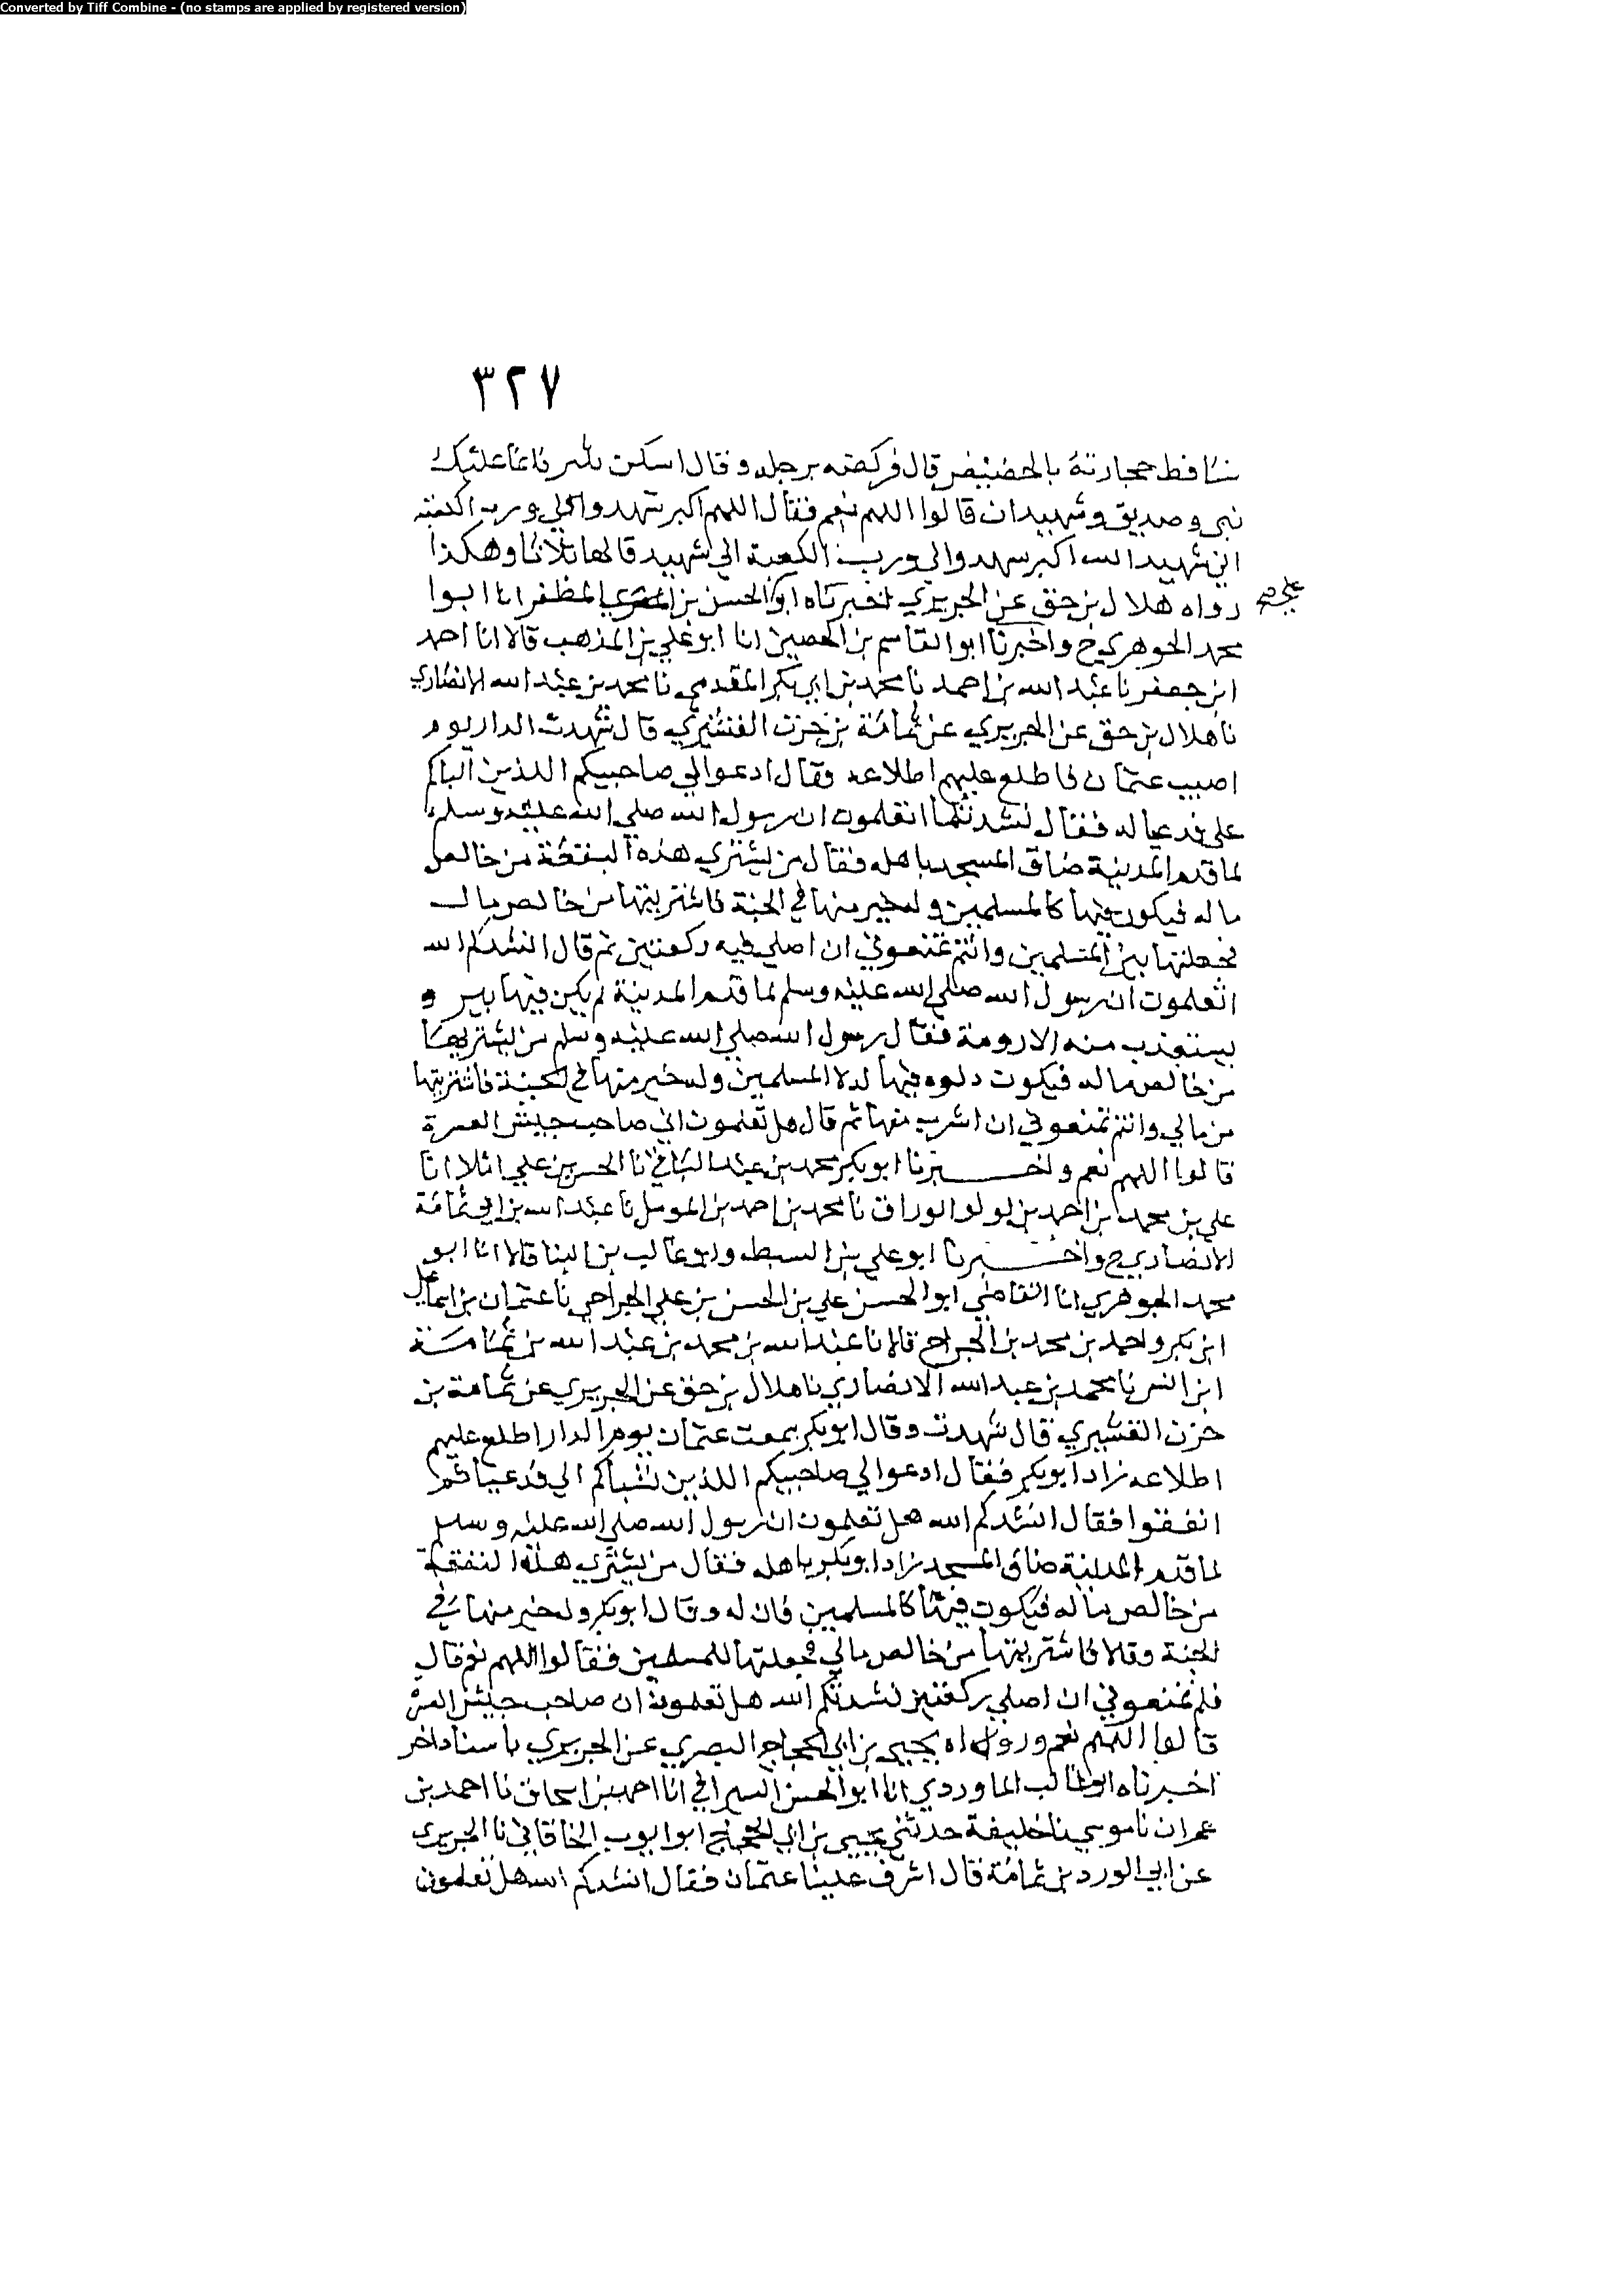 Converted by Tiff Combine - (no stamps are applied by registered version)
٣٢٧
تساقط حجارته بالحضيض قال فركضه برجله وقال اسكن ثبير فانما عليك
نبي وصديق وشهيدان قالوا اللهم نعم فقال الله اكبر شهدوا لي ورب الكعبة
اني شهيد الله اكبر شهدوا لي ورب الكعبة اني شهيد قالها ثلاثا وهكذا
رواه هلال بن حق عن الجريري اخبرناه ابو الحسن بن المظفر انا ابوا
محمد الجوهري ح واخبرنا ابو القاسم بن الحصين انا ابو علي بن المذهب قالا انا احمد
ابن جعفر نا عبد الله بن احمد نا محمد بن ابي بكر المقدمي نا محمد بن عبد الله الانصاري
نا هلال بن حق عن الجريري عن ثمامة بن حزن القشيري قال شهدت الدار يوم
اصيب عثمان فاطلع عليهم اطلاعه فقال ادعوا لي صاحبيكم اللذين الباكم
علي فدعيا له فقال نشدتكما اتعلمون ان رسول الله صلي الله عليه وسلم
لما قدم المدينة ضاق المسجد باهله فقال من يشتري هذه البقعة من خالص
ماله فيكون فيها كالمسلمين وله خير منها في الجنة فاشتريتها من خالص مالي
فجعلتها بين المسلمين وانتم تمنعوني ان اصلي فيه ركعتين ثم قال انشدكم الله
اتعلمون ان رسول الله صلي الله عليه وسلم لما قدم المدينة لم يكن فيها بير و
يستعذب منه الا رومة فقال رسول الله صلي الله عليه وسلم من يشتريها
من خالص ماله فيكون دلوه فيها كدلا المسلمين وله خير منها في الجنة فاشتريتها
من مالي وانتم تمنعوني ان اشرب منها ثم قال هل تعلمون اني صاحب جيش العسرة
قالوا اللهم نعم واخبرنا ابو بكر محمد بن عبد الباقي انا الحسن بن علي املا انا
علي بن محمد بن احمد بن لولو الوراق نا محمد بن احمد بن المومل نا عبد الله بن ابي ثمامة
الانصاري ح واخبرنا ابو علي بن السبط وابو غالب بن البنا قالا انا ابو
محمد الجوهري انا القاضي ابو الحسن علي بن الحسن بن علي الجراحي نا عثمان بن اسماعيل
ابن بكر واحمد بن محمد بن الجراح قالا نا عبد الله بن محمد بن عبد الله بن ثمامة
ابن انس نا محمد بن عبد الله الانصاري نا هلال بن حق عن الجريري عن ثمامة بن
حزن القشيري قال شهدت وقال ابو بكر سمعت عثمان يوم الدار اطلع عليهم
اطلاعه زاد ابو بكر فقال ادعوا لي صاحبيكم اللذين الي فدعيا ثم
اتفقوا فقال انشدكم الله هل تعلمون ان رسول الله صلي الله عليه وسلم
لما قدم المدينة ضاق المسجد زاد ابو بكر باهله فقال من يشتري هذه
من خالص ماله فيكون فيها كالمسلمين وقال ابو بكر وله خير منها في
الجنة وقالا فاشتريتها من خالص مالي فجعلتها للمسلمين فقالوا اللهم نعم قال
فلم تمنعوني ان اصلي ركعتين نشدتكم الله هل تعلمون ان صاحب جيش العسرة
قالوا اللهم نعم ورواه يحيي بن ابي الحجاج البصري عن الجريري باسناد اخر
اخبرناه ابو غالب الماوردي انا ابو الحسن السيرافي انا احمد بن اسحاق نا احمد بن
عمران نا موسي نا خليفة حدثني يحيي بن ابي الحجاج ابو ايوب الخاقاني نا الجريري
عن ابي الورد بن ثمامة قال اشرف علينا عثمان فقال انشدكم الله هل تعلمون